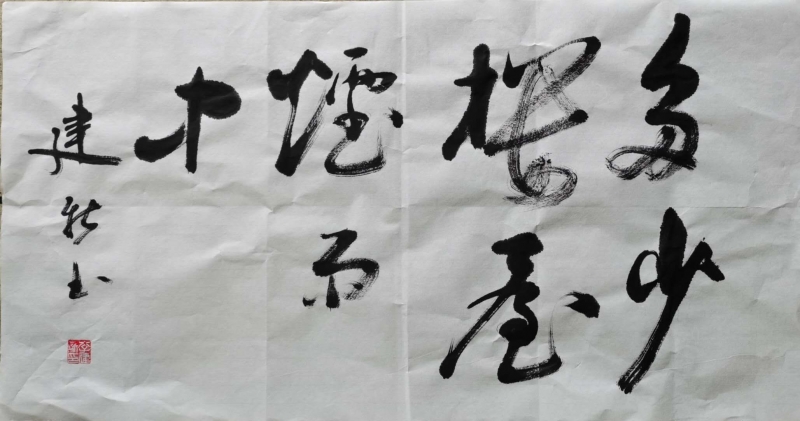 多少
楼台
烟雨
中
建新书